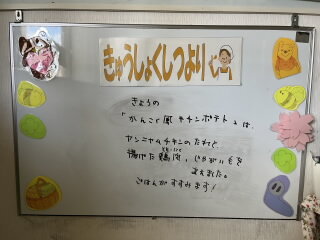 きゅうしょくしつより
きょうの
「かんこく風チキンポテト」は、
ヤンニャムチキンのたれと
揚げた鶏肉、じゃがいもを
まぜました。
ごはんがすすみます!